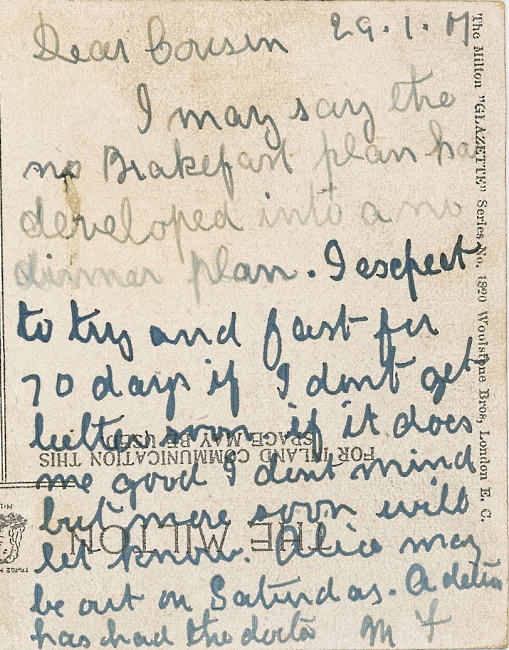 Dear Cousin 29.1.07
I may say the
no Brakefast plan ha
developed into a no
dinner plan. I escpect
to try and fast for
70 days if I dont get
better soon. if it does
me good I dont mind
but more soon will
let know. Alice may
be out on Saturdas.
has had the docto M F
The Milton "GLAZETTE" Series No. 1820 Woolstone Bros, London E. C.
FOR INLAND COMMUNICATION THIS
SPACE MAY BE USED
THE MILTON